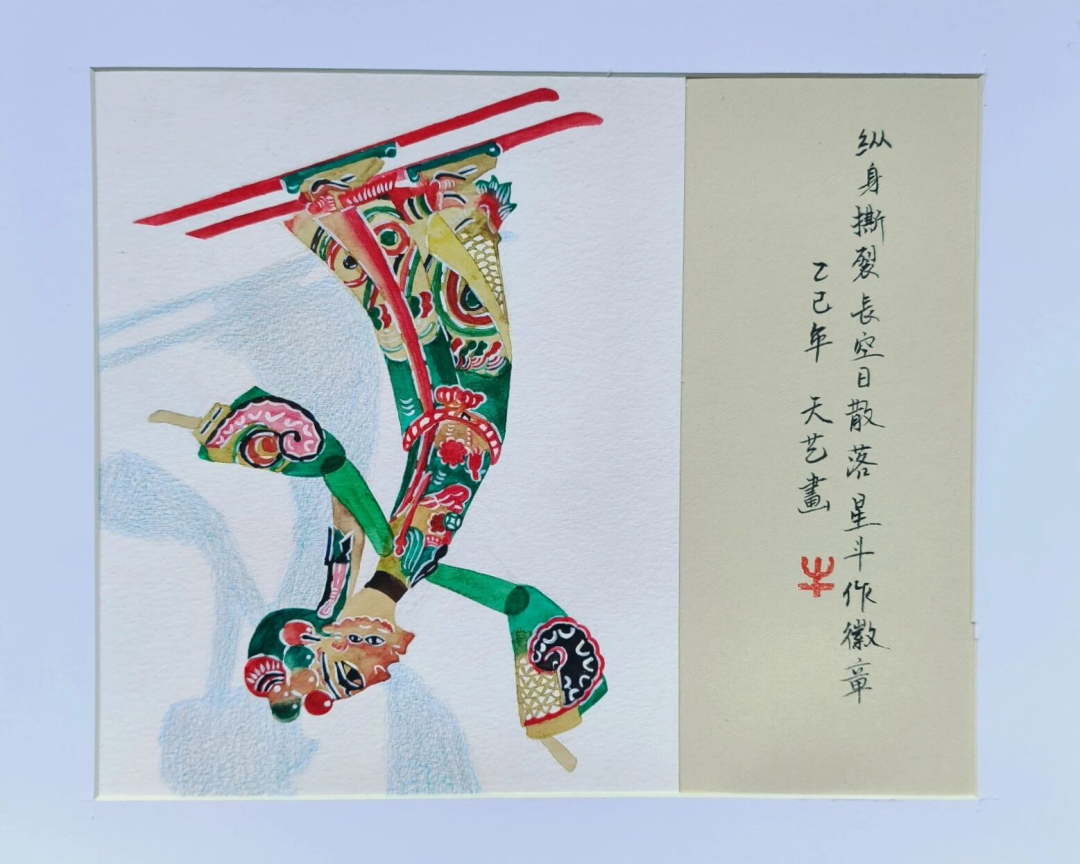 纵身撕裂長空日散落星斗作徽章
乙巳年 天艺畫